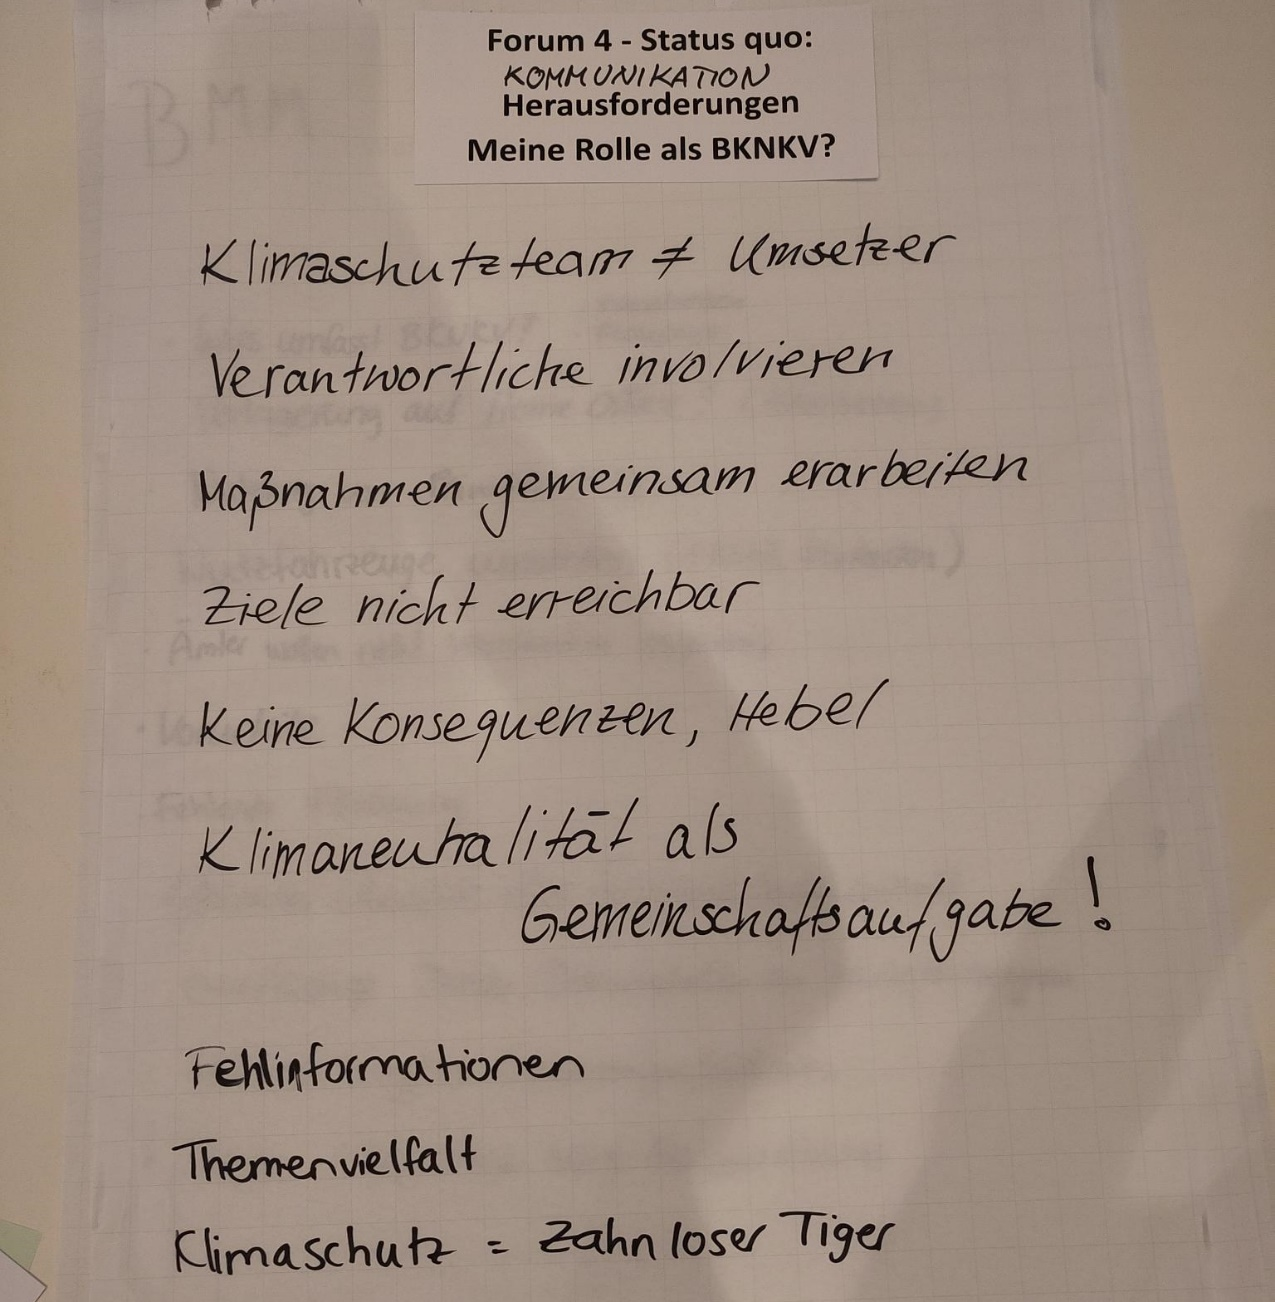 Forum 4 - Status quo:
KOMMUNIKATION
Herausforderungen
Meine Rolle als BKNKV?
BMM
Klimaschutzteam ≠ Umsetzer
Verantwortliche involvieren
Maßnahmen gemeinsam erarbeiten
Ziele nicht erreichbar
Keine Konsequenzen, Hebel
Klimaneutralität als
Gemeinschaftsaufgabe!
Fehlinformationen
Themenvielfalt
Klimaschutz = Zahnloser Tiger